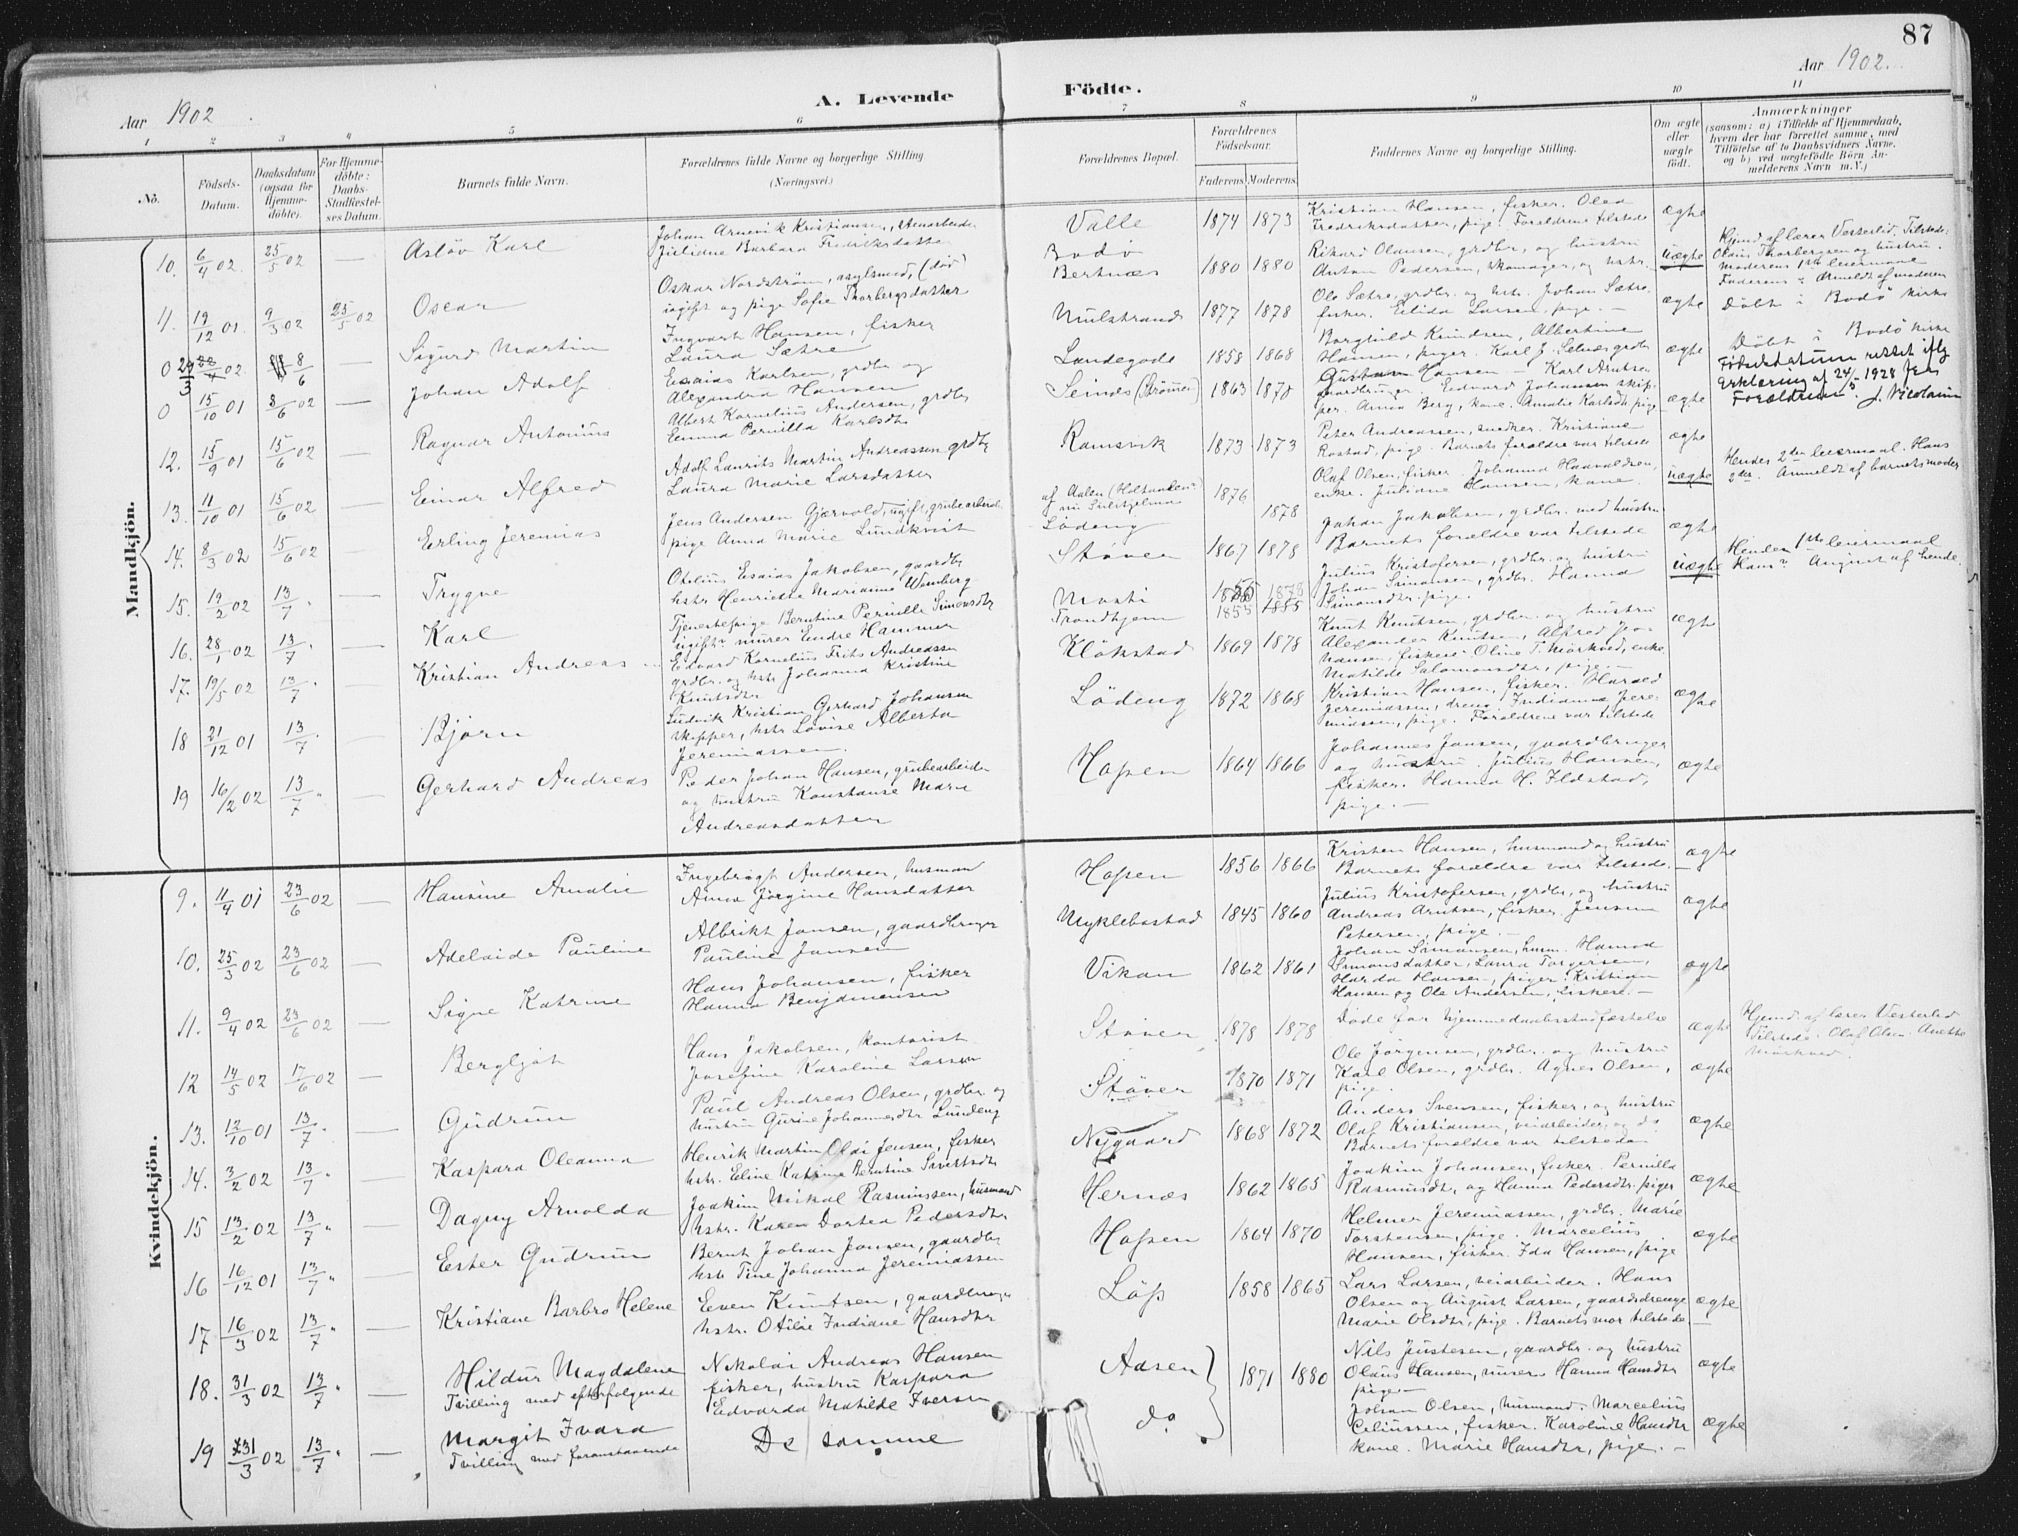 87
Aar 1902.
A. Levende Födte.
Aar 1902.
1 2 3 4 5 6 7 8 9 10 11
No.
Födsels-Datum.
Daabsdatum (ogsaa for Hjemmedöbte).
For Hjemmedöbte: Daabs-Stadfæstelses Datum.
Barnets fulde Navn.
Forældrenes fulde Navne og borgerlige Stilling
(Næringsvei.)
Forældrenes Bopæl.
Forældrenes Födselsaar.
Faderens. Moderens.
Faddernes Navne og borgerlige Stilling.
Om ægte eller uægte födt.
Anmærkninger
(saasom: a) i Tilfælde af Hjemmedaab, hvem der har forrettet samme, med Tilföielse af to Daabsvidners Navne. og b) ved uægtefödte Börn Anmelderens Navn m.V.)
Mandkjön.
10. 6/4 02 25/5 02 — Asløv Karl
Johan Arnevik Kristiansen,
Juliane Barbara Fredriksdatter
Valle 1874 1873
Kristian Hansen, fisker. Olea
Fredriksdatter, pige. Forældrene tilstede
ægte
11. 19/12 01 9/3 02 25/5 02 Oscar
Oskar Nordstrøm, asylsmed, (død)
ugift og pige Sofie Thorbergsdatter
Bodø
Bertnæs 1880 1880
Rikard Olausen, grdbr. og hustru
Anton Pedersen, skomager, og hstr.
uægte
Hjemd. af lærer Vesterlid. Tilstede:
Olaus Thorbergsen og hustru.
Moderens 1ste leiermaal
Faderens " Anmeldt af moderen
0 29/3 02 8/6 — Sigurd Martin
Ingvart Hansen, fisker
Laura Sætre
Mulstrand 1877 1878
Ole Sætre, grdbr. og hstr. Johan Sætre
fisker. Elida Larsen, pige. —
ægte
Døbt i Bodø kirke
0 15/10 01 8/6 02 — Johan Adolf
Esaias Karlsen, grdbr og
Alexandra Hansen
Landegode 1858 1868
Borghild Knudsen, Albertine
Hansen, piger. Karl J. Selnes grdbr
ægte
Døbt i Bodø kirke
Fødselsdatum rettet iflg
Erklæring af 24/5 1928 fra
Forældrene. J. Nicolaisen
12. 15/9 01 15/6 02 — Ragnar Antonius
Albert Kornelius Andersen, grdbr
Emma Pernilla Karlsdtr
Seines (Strømmen) 1863 1870
Gustav Hansen — Karl Arntsen
gaardbruger. Edvard Johansen skipper. Anna Berg, kone. Amalie Karlsdtr pige
ægte
13. 11/10 01 15/6 02 — Einar Alfred
Adolf Laurits Martin Andreassen grdbr
Laura Marie Larsdatter
Ramsvik 1873 1873
Peter Andreassen, snedker. Kristiane
Rostad, pige. Barnets forældre var tilstede
ægte
14. 8/3 02 15/6 02 — Erling Jeremias
Jens Andersen Gjærvold, ugift, grubearbeid.
pige Anna Marie Lundkvist
af Aalen (Holtaalen)
nu Sulitjelma 1876
Løding 1878
Olaf Olsen, fisker. Johanna Haavaldsen,
enke. Juliane Hansen, kone.
uægte
Hendes 2den leiermaal. Hans
2det. Anmeldt af barnets moder
15. 19/2 02 13/7 " — Trygve
Otelius Esaias Jakobsen, gaardbr
hstr Henriette Marianne Wamberg
Støver 1867 1878
Johan Jakobsen, grdbr. med hustru
Barnets forældre var tilstede
ægte
16. 28/1 02 13/7 " — Karl
Tjenestepige Berntine Pernille Simonsdtr
ugift murer Endre Hammer
Mosti 1878
Trondhjem 1855 1885
Julius Kristofersen, grdbr. og hustru
Johan Simonsen, grdbr. Hanna
Simonsdtr, pige.
uægte
Hendes 1ste leiermaal
Hans? August af hende.
17. 19/5 02 13/7 " — Kristian Andreas
Edvard Kornelius Frits Andreassen
grdbr. og hstr Johanna Kristine
Knutsdtr
Kløkstad 1869 1878
Knut Knutsen, grdbr. og hustru
Alexander Knutsen, Alfred Johansen, fiskere. Oline T. Mørkved, enke
Matilde Salamonsdtr, pige. —
ægte
18 21/12 01 13/7 " — Bjørn
Ludvik Kristian Gerhard Johansen
skipper, hstr Lovise Alberta
Jeremiassen.
Løding 1872 1868
Kristian Hansen, fisker. Harald
Jeremiassen, dreng. Indianna Jeremiassen, pige. Forældrene var tilstede
ægte
19 16/2 02 13/7 " — Gerhard Andreas
Peder Johan Hansen, grubearbeider
og hustru Konstanse Marie
Andreasdatter
Hopen 1864 1866
Johannes Jansen, gaardbruger
og hustru. Julius Hansen,
fisker. Hanna H. Ildstad,
pige. —
ægte
Kvindekjön.
9. 11/4 01 23/6 02 — Hansine Amalie
Ingebrigt Andersen, husmand
Anna Jørgine Hansdatter
Hopen 1856 1866
Kristen Hansen, husmand og hustru
Barnets forældre var tilstede
ægte
10. 25/3 02 23/6 02 — Adelaide Pauline
Albrikt Jansen, gaardbruger
Pauline Jansen
Myklebostad 1845 1860
Julius Kristofersen, grdbr. og hustru
Andreas Arntsen, fisker. Jensine
Petersen, pige. —
ægte
11. 9/4 02 23/6 02 — Signe Katrine
Hans Johansen, fisker
Hanna Benjaminsen
Vikan 1862 1861
Johan Simonsen, husm. Hanna
Simonsdatter, Laura Torgersen,
Harda Hansen, piger. Kristian
Hansen og Ole Andersen, fiskere. —
ægte
12 14/5 02 17/6 02 — Bergljot
Hans Jakobsen, kontorist
Josefine Karoline Larsen
Støver 1878 1878
Døde før hjemmedaabsstadfæstelse
ægte
Hjemd. af lærer Vesterlid
Tilstede: Olaf Olsen. Anette
Mørkved.
13. 12/10 01 13/7 " — Gudrun
Paul Andreas Olsen, grdbr. og
hustru Gurine Johannesdtr Lundeng
Støver 1870 1871
Ole Jørgensen, grdbr. og hustru
Karl Olsen, grdbr. Agnes Olsen,
pige.
ægte
14. 3/2 02 13/7 " — Kaspara Oleanna
Henrik Martin Olai Jensen, fisker
hstr. Eline Katrine Berntine Sivertsdtr
Nygaard 1868 1872
Anders Svensen, fisker, og hustru
Olaf Kristiansen, veiarbeider, og do
Barnets forældre var tilstede
ægte
15 13/2 02 13/7 " — Dagny Arnolda
Joakim Mikal Rasmussen, husmand
hstr. Karen Dortea Pedersdtr
Hernæs 1862 1865
Joakim Johansen, fisker. Pernilla
Rasmusdtr, og Hanna Pedersdtr piger
ægte
16 16/12 01 13/7 " — Ester Gudrun
Bernt Johan Jansen, gaardbr
hstr Tine Johanna Jeremiassen
Hopen 1864 1870
Helmer Jeremiassen, grdbr. Marie
Torstensen, pige. Marcelius
Hansen, fisker. Ida Hansen, pige
ægte
17 16/3 02 13/7 " — Kristiane Barbro Helene
Even Knutsen, gaardbruger
hstr. Otilie Indiane Hansdtr
Løp 1858 1865
Lars Larsen, veiarbeider. Hans
Olsen og August Larsen, gaardsdrenge
Marie Olsdtr, pige. Barnets mor tilstede
ægte
18. 31/3 02 13/7 " — Hildur Magdalene
Tvilling med efterfølgende
Nikolai Andreas Hansen
fisker, hustru Kaspara
Edvarda Matilde Iversen
Aasen 1871 1880
Nils Justesen, gaardbr. og hustru
Olaus Hansen, murer. Hanna Hansdtr
pige —
ægte
19 31/3 02 13/7 " — Margit Ivara
Tvilling med foranstaaende
De samme
do
Johan Olsen, husmand. Marcelius
Celiussen, fisker. Karoline Hansdtr
kone. Marie Hansdtr, pige. —
ægte